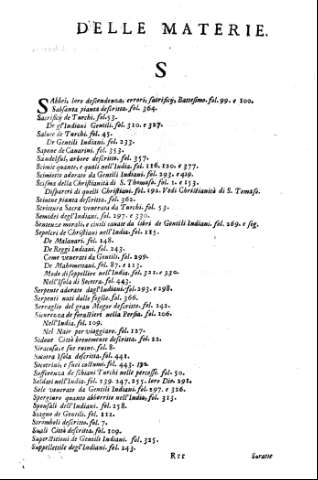 DELLE MATERIE.
S
SAbbei, loro descendenza, errori, sacrificij, Battesimo. fol. 99. e 100.
Sabsanta pianta descritta. fol. 364.
Sacrificij de Turchi. fol. 53.
De gl'Indiani Gentili. fol. 320. e 327.
Saluto de Turchi. fol. 45.
De Gentili Indiani. fol. 233.
Sapone de Canarini. fol. 353.
Sandelful, arbore descritto. fol. 357.
Scimie quante, e quali nell'India. fol. 116. 120. e 377.
Scimiotto adorato da Gentili Indiani. fol. 293. e 419.
Scisma della Christianità di S. Thomaso. fol. 1. e 153.
Dispareri di questi Christiani. fol. 192. Vedi Christianità di S. Tomaso.
Scitone pianta descritta. fol. 362.
Scrittura Sacra venerata da Turchi. fol. 53.
Semidei degl'Indiani. fol. 297. e 330.
Sentenze morali, e civili cavate da libri de Gentili Indiani. fol. 269. e sig.
Sepolcri de Christiani nell'India. fol. 115.
De Malavari. fol. 248.
De Reggi Indiani. fol. 243.
Come venerati da Gentili. fol. 299.
De Mahomettani. fol. 87. e 113.
Modo di seppellire nell'India. fol. 322. e 330.
Nell'Isola di Socotra. fol. 443.
Serpente adorato dagl'Indiani. fol. 293. e 298.
Serpenti nati dalle foglie. fol. 366.
Serraglio del gran Mogor descritto. fol. 242.
Sicurezza de forastieri nella Persia. fol. 106.
Nell'India. fol. 109.
Nel Nair per viaggiare. fol. 127.
Sidone Città brevemente descritta. fol. 22.
Siracusa, e sue rovine. fol. 8.
Socotra Isola descritta. fol. 441.
Socotrini, e suoi costumi. fol. 443. 192.
Sofferenza de schiavi Turchi nelle percosse. fol. 50.
Soldati nell'India. fol. 139. 247. 255. loro Dio 292.
Sole venerato da Gentili Indiani. fol. 297. e 326.
Spergiuro quanto abborrito nell'India. fol. 313.
Sponsali dell'Indiani. fol. 258.
Stagno de Genoesi. fol. 112.
Stromboli descritto. fol. 7.
Suali Città descritta. fol. 109.
Superstitioni de Gentili Indiani. fol. 325.
Suppellettile degl'Indiani. fol. 243.
Rrr Suratte